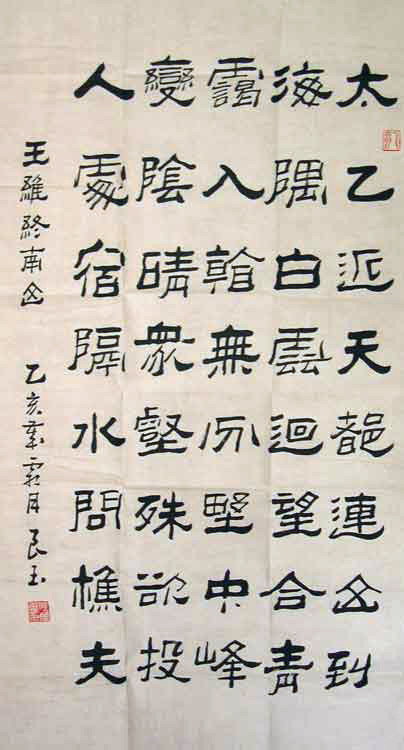 太乙近天都連山到
海隅白雲迴望合青
靄入看無分野中峰
變陰晴眾壑殊欲投
人處宿隔水問樵夫
王維終南山 乙亥歲霜月 良玉